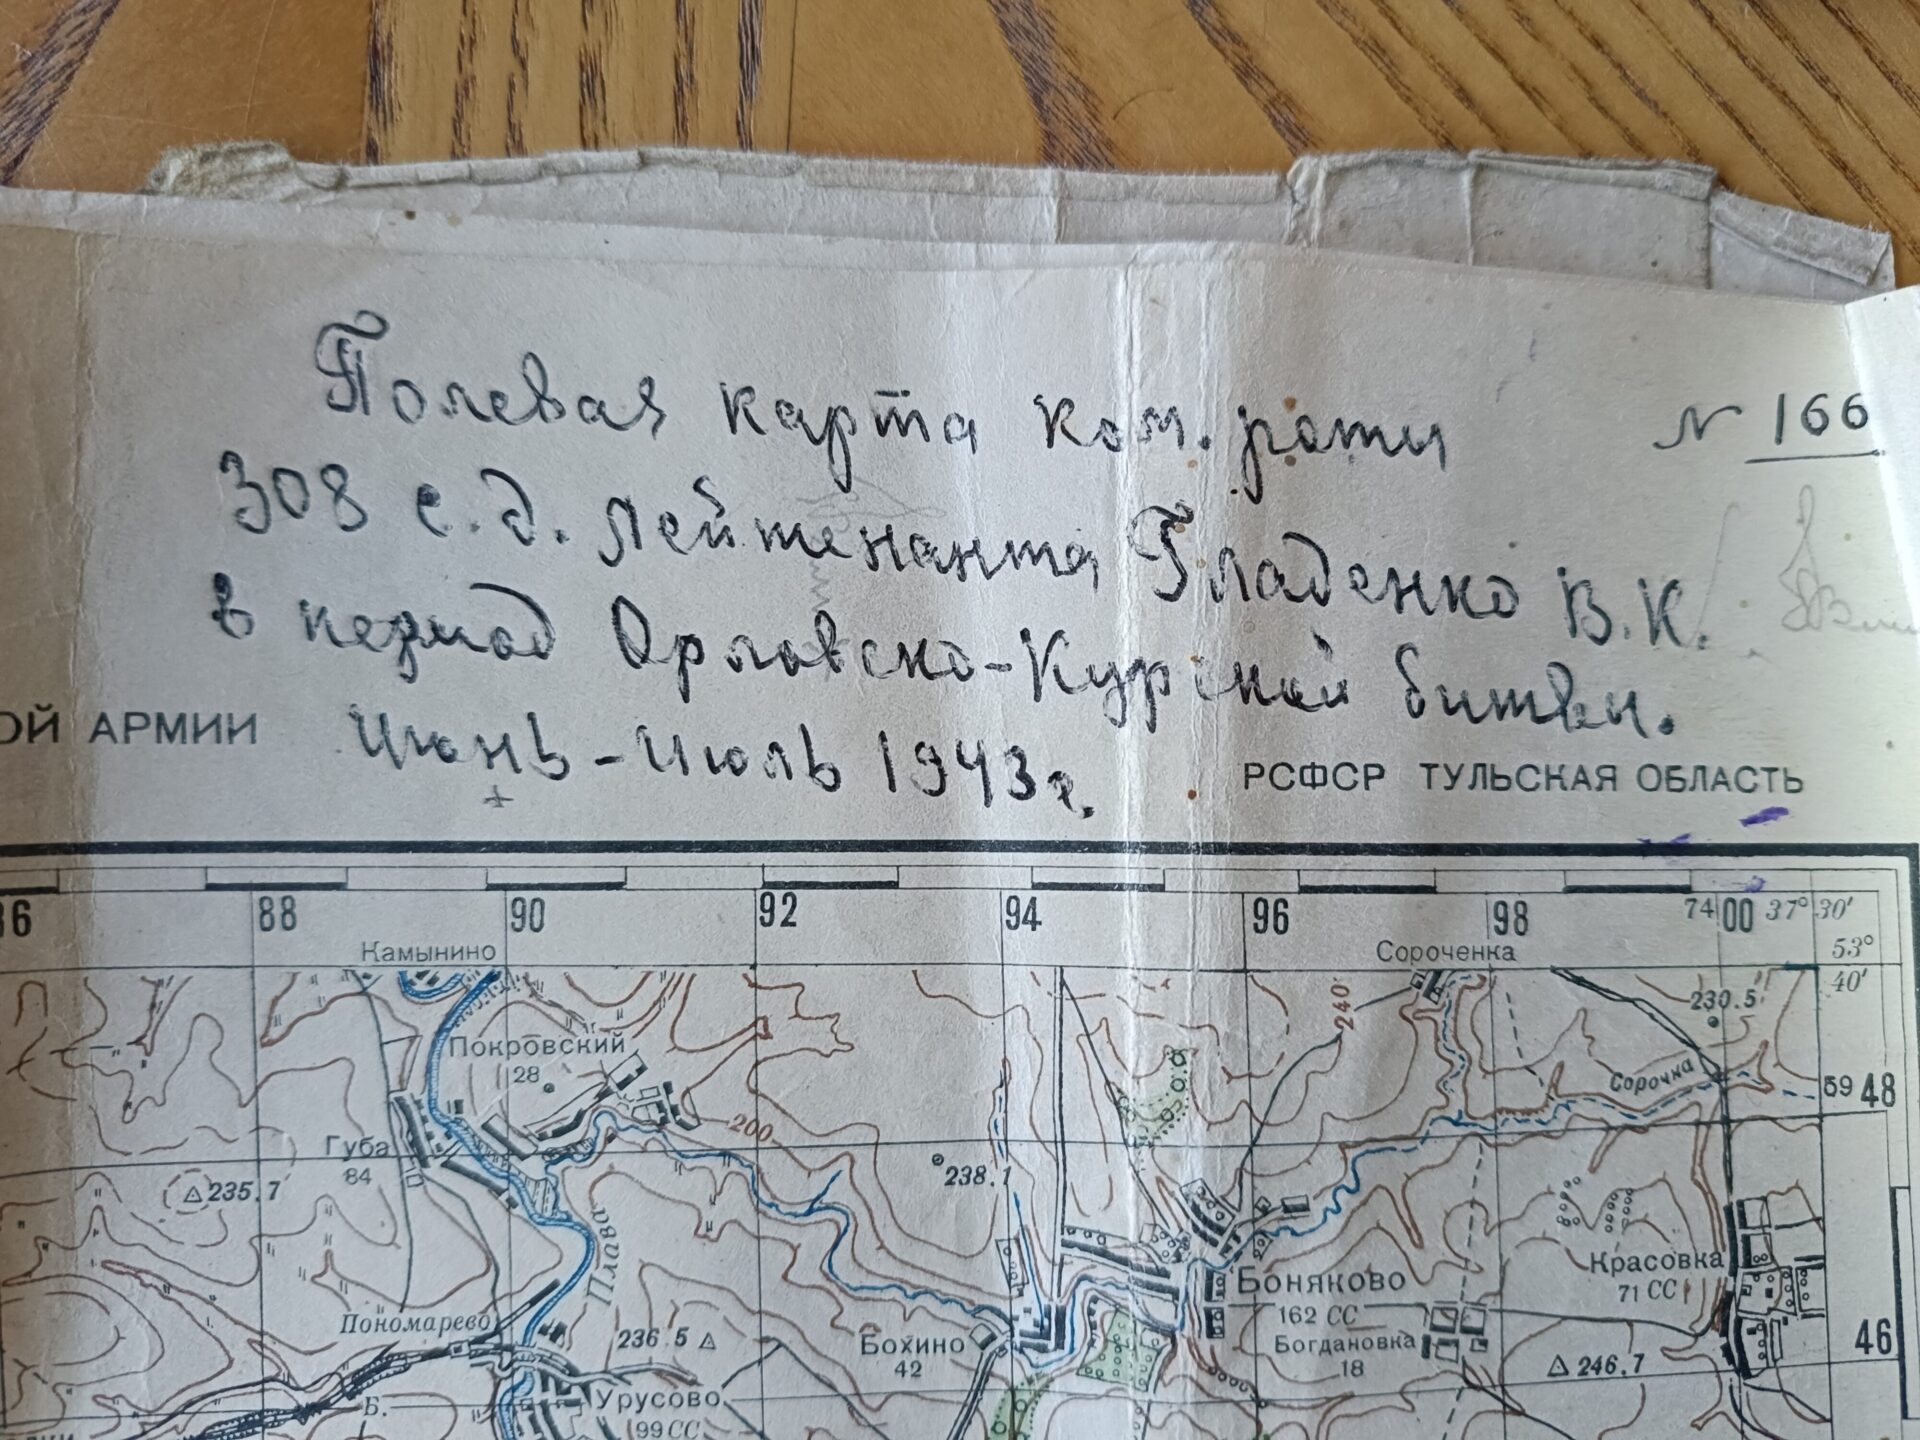 Полевая карта ком. роты
№ 166
308 с.д. Лейтенанта Гладенко В.К.
в период Орловско-Курской битвы.
Июнь-Июль 1943г.
ОЙ АРМИИ
РСФСР ТУЛЬСКАЯ ОБЛАСТЬ
86 88 90 92 94 96 98 7400 37°30'
Камынино
Сороченка
53°
40'
240
230.5
Покровский
28
Сорочка
5948
200
Губа
84
238.1
235.7
Плава
Красовка
71 СС
Боняково
162 СС
Пономарево
236.5
Бохино
42
Богдановка
18
246.7
46
Урусово
99 СС
Б.